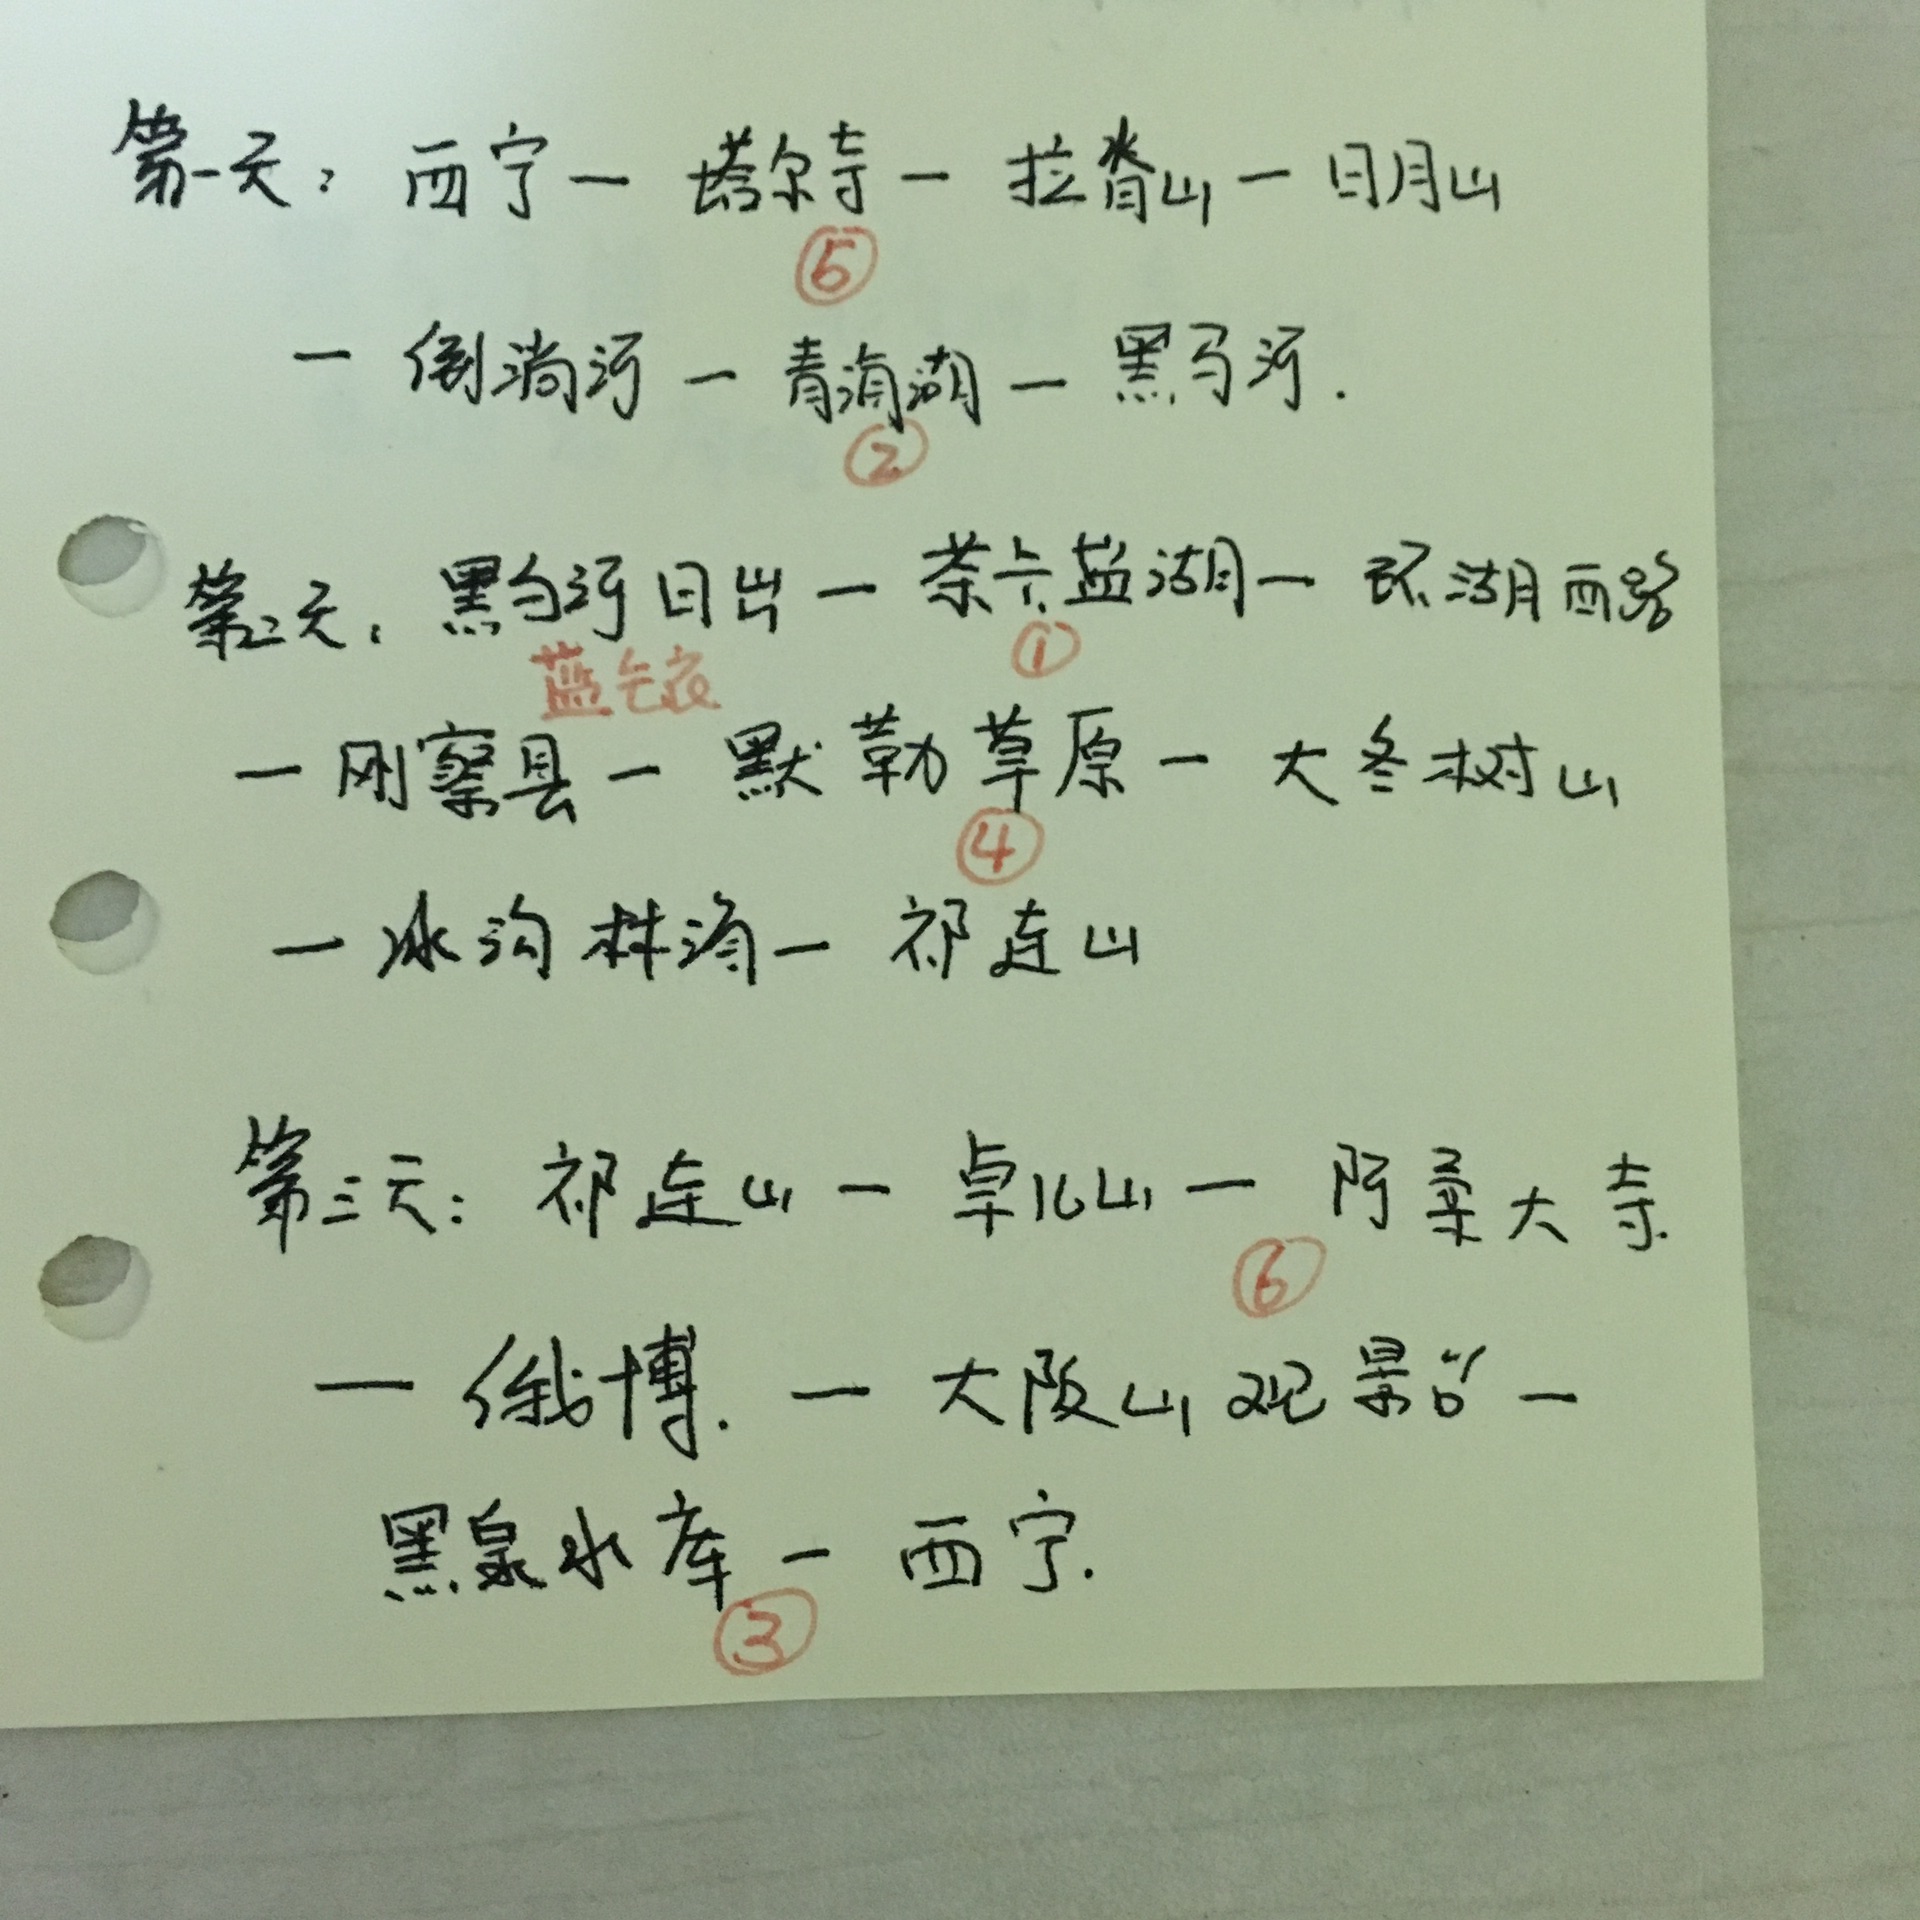 第一天：西宁一塔尔寺一拉脊山一日月山
⑤
一倒淌河一青海湖一黑马河.
②
第二天：黑马河日出一茶卡盐湖一环湖西路
蓝衣 ①
一刚察县一默勒草原一大冬树山
④
一冰沟林海一祁连山
第三天：祁连山一卓儿山一阿柔大寺.
⑥
一俄博.一大阪山观景台一
黑泉水库一西宁.
③